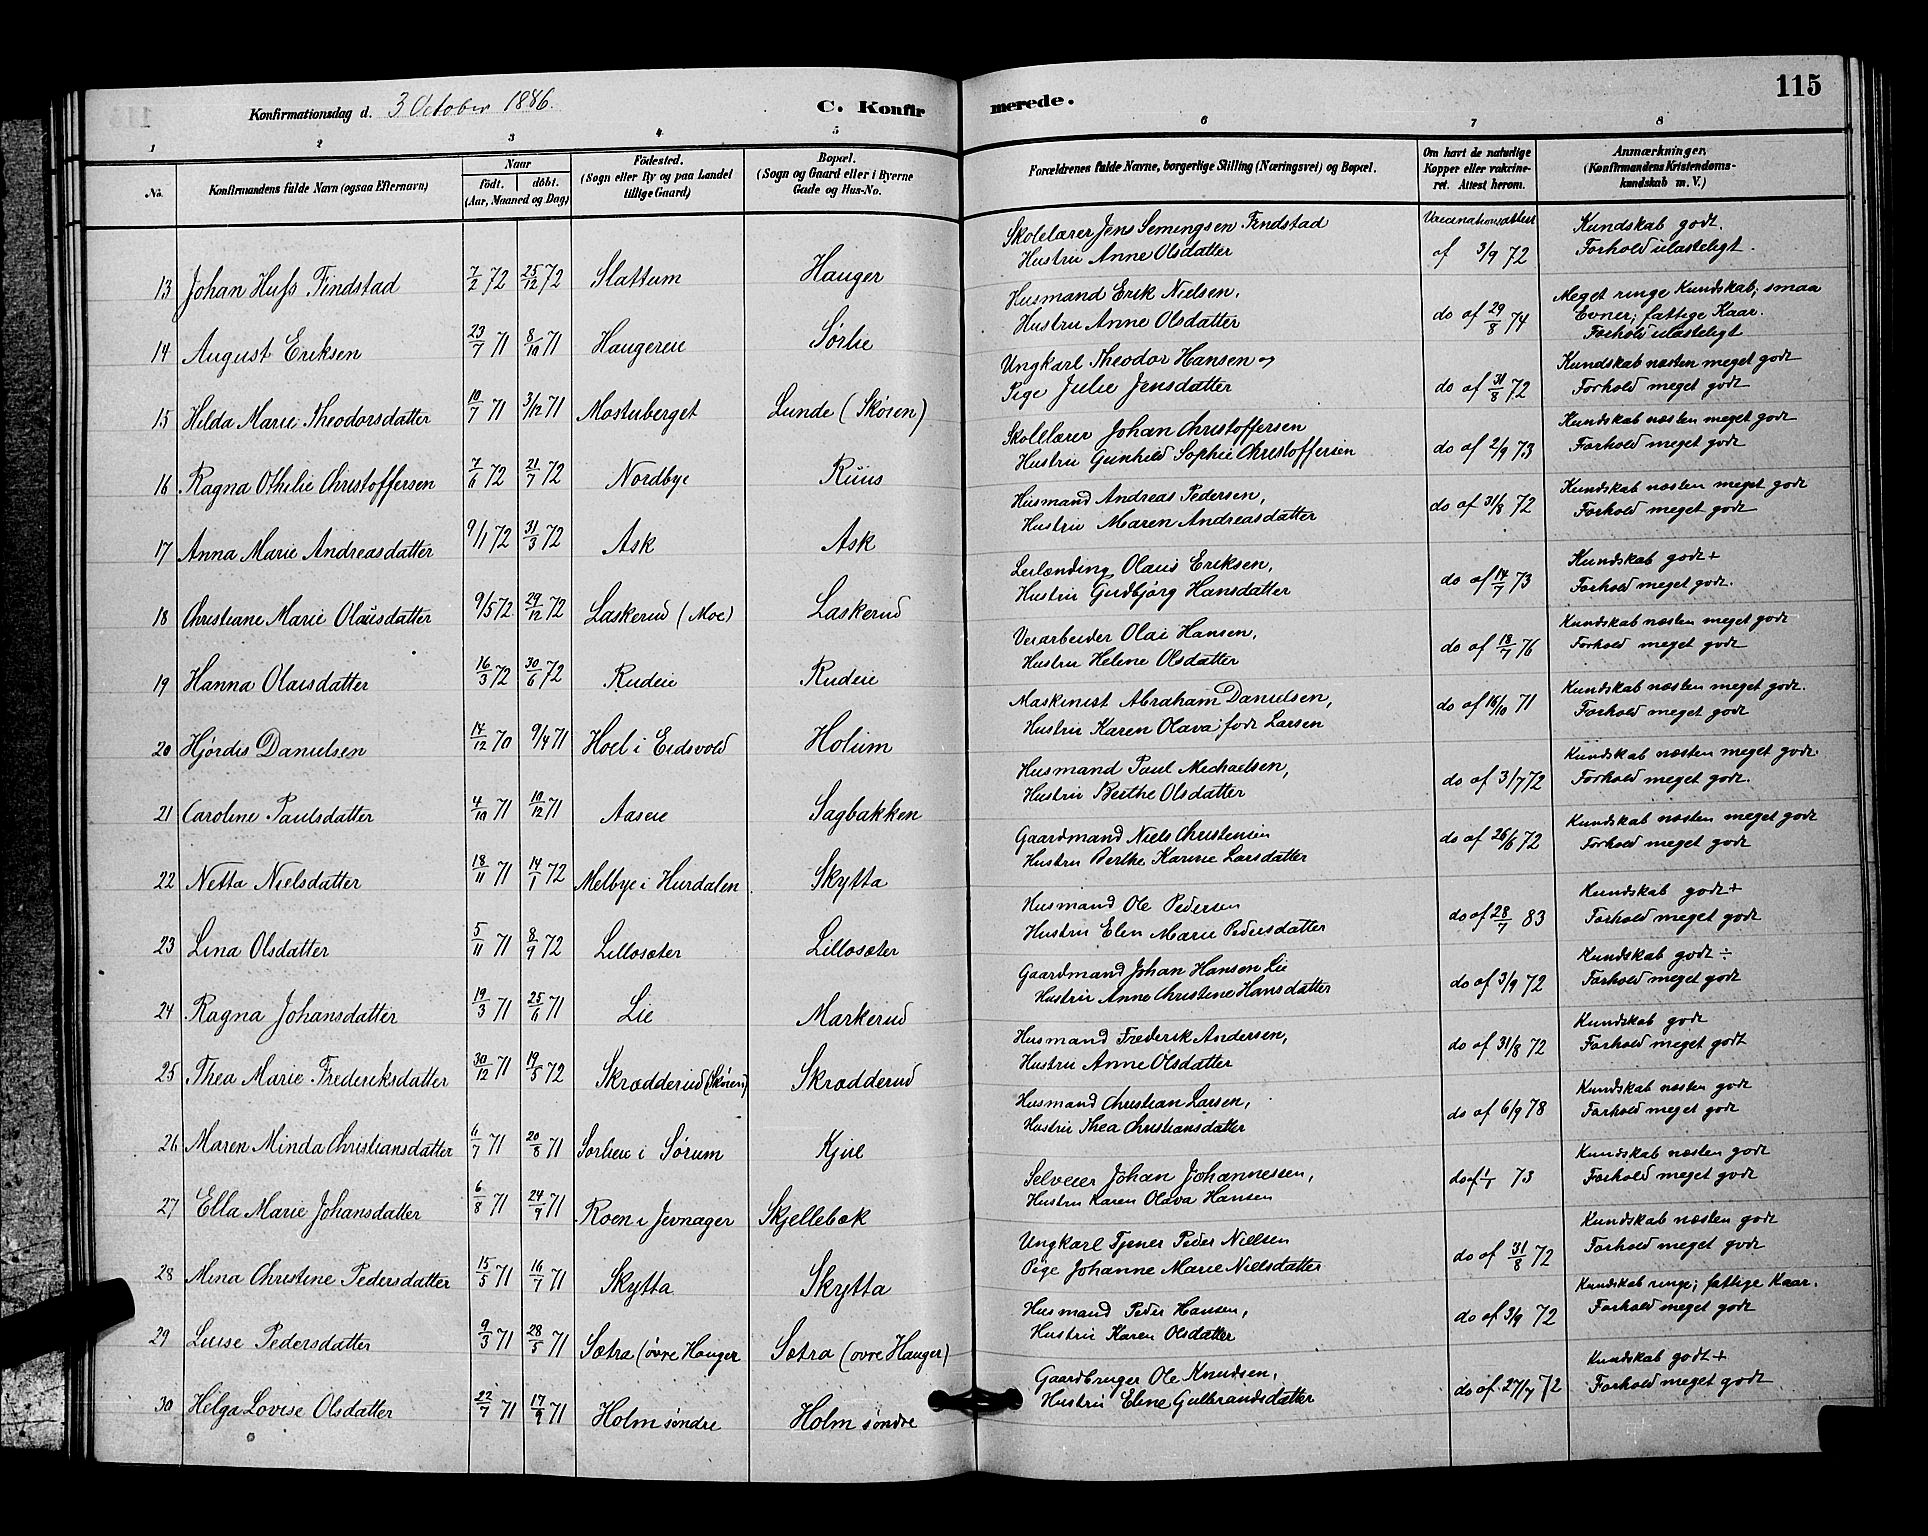 115
Konfirmationsdag d. 3 October 1886.
C. Konfirmerede.
1 2 3 4 5 6 7 8
No. Konfirmandens fulde Navn (ogsaa Efternavn) Naar født. døbt. (Aar, Maaned og Dag) Födested. (Sogn eller By og paa Landet tillige Gaard) Bopæl. (Sogn og Gaard eller i Byerne Gade og Hus-No. Forældrenes fulde Navne, borgerlige Stilling (Næringsvei) og Bopæl. Om havt de naturlige Kopper eller vakcineret. Attest herom. Anmærkninger. (Konfirmandens Kristendomskundskab m. V.)
13 Johan Huss Findstad 7/2 72 25/12 72 Slattum Hauger
Skolelærer Jens Semingsen Findstad
Hustru Anne Olsdatter
af 3/9 72
Kundskab godt.
Forhold ulasteligt.
14 August Eriksen 23/7 71 8/10 71 Haugereie Sørlie
Husmand Erik Nielsen,
Hustru Anne Olsdatter
do af 29/8 74
Meget ringe Kundskab; smaa
Evner; fattige Kaar.
Forhold ulasteligt
15 Helda Marie Theodorsdatter 10/7 71 3/12 71 Mostuberget Lunde (Skøien)
Ungkarl Theodor Hansen og
Pige Julie Jensdatter
do af 31/8 72
Kundskab næsten meget godt
Forhold meget godt
16 Ragna Othilie Christoffersen 7/6 72 21/7 72 Nordbye Ruus
Skolelærer Johan Christoffersen
Hustru Gunhild Sophie Christoffersen
do af 2/9 73
Kundskab næsten meget godt
Forhold meget godt
17 Anna Marie Andreasdatter 9/1 72 31/3 72 Ask Ask
Husmand Andreas Pedersen,
Hustru Maren Andreasdatter
do af 31/8 72
Kundskab næsten meget godt
Forhold meget godt
18 Christiane Marie Olausdatter 9/5 72 29/12 72 Laskerud (Moe) Laskerud
Leilænding Olaus Eriksen,
Hustru Gudbjørg Hansdatter
do af 14/7 73
Kundskab godt +
Forhold meget godt.
19 Hanna Olaisdatter 16/3 72 30/6 72 Rudeie Rudeie
Veiarbeider Olai Hansen,
Hustru Helene Olsdatter
do af 18/7 76
Kundskab næsten meget godt
Forhold meget godt
20 Hjørdis Danielsen 14/12 70 9/4 71 Hoel i Eidsvold Holum
Maskinist Abraham Danielsen,
Hustru Karen Olava, født Larsen
do af 16/10 71
Kundskab næsten meget godt.
Forhold meget godt
21 Caroline Paulsdatter 4/10 71 10/12 71 Aaseie Sagbakken
Husmand Paul Michaelsen,
Hustru Berthe Olsdatter
do af 3/7 72
Kundskab næsten meget godt.
Forhold meget godt.
22 Netta Nielsdatter 18/11 71 14/1 72 Melbye i Hurdalen Skytta
Gaardmand Niels Christensen
Hustru Berthe Karine Larsdatter
do af 26/6 72
Kundskab næsten meget godt
Forhold meget godt
23 Lina Olsdatter 5/11 71 8/9 72 Lillosæter Lillosæter
Husmand Ole Pedersen
Hustru Elen Marie Pedersdatter
do af 28/7 83
Kundskab godt +
Forhold meget godt
24 Ragna Johansdatter 19/3 71 25/6 71 Lie Markerud
Gaardmand Johan Hansen Lie
Hustru Anne Christine Hansdatter
do af 3/9 72
Kundskab godt ÷
Forhold meget godt
25 Thea Marie Frederiksdatter 30/12 71 19/5 72 Skrædderud (Skøien) Skrædderud
Husmand Frederik Andersen,
Hustru Anne Olsdatter
do af 31/8 72
Kundskab godt
Forhold meget godt
26 Maren Minda Christiansdatter 6/7 71 20/8 71 Sørlieie i Sørum Kjiul
Husmand Christian Larsen,
Hustru Thea Christiansdatter
do af 6/9 78
Kundskab næsten godt
Forhold meget godt
27 Ella Marie Johansdatter 6/8 71 24/9 71 Roen i Jevnager Skjellebæk
Selveier Johan Johannessen,
Hustru Karen Olava Hansen
do af 73
Kundskab næsten godt
Forhold meget godt
28 Mina Christine Pedersdatter 15/5 71 16/7 71 Skytta Skytta
Ungkarl Tjener Peder Nielsen
Pige Johanne Marie Nielsdatter
do af 31/8 72
Kundskab næsten godt
Forhold meget godt
29 Luise Pedersdatter 9/3 71 28/5 71 Sætra (øvre Hauger Sætra (øvre Hauger)
Husmand Peder Hansen,
Hustru Karen Olsdatter
do af 3/9 72
Kundskab ringe; fattige Kaar.
Forhold meget godt
30 Helga Lovise Olsdatter 22/7 71 17/9 71 Holm søndre Holm søndre
Gaardbruger Ole Knudsen,
Hustru Eline Gulbrandsdatter
do af 27/7 72
Kundskab godt +
Forhold meget godt